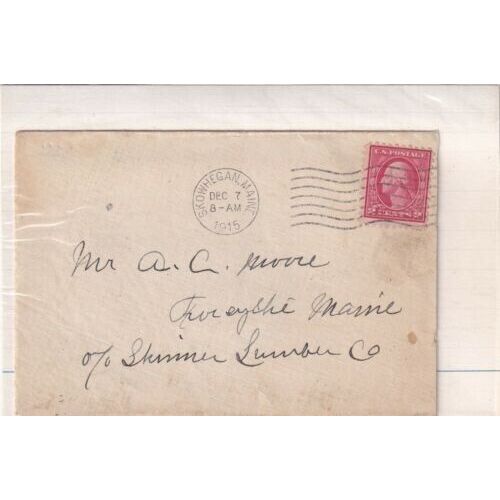 U.S. POSTAGE
SKOWHEGAN, MAINE
DEC 7
8-AM
1915
2 CENTS 2
Mr A. C. Moore
Forsythe Maine
c/o Skinner Lumber Co